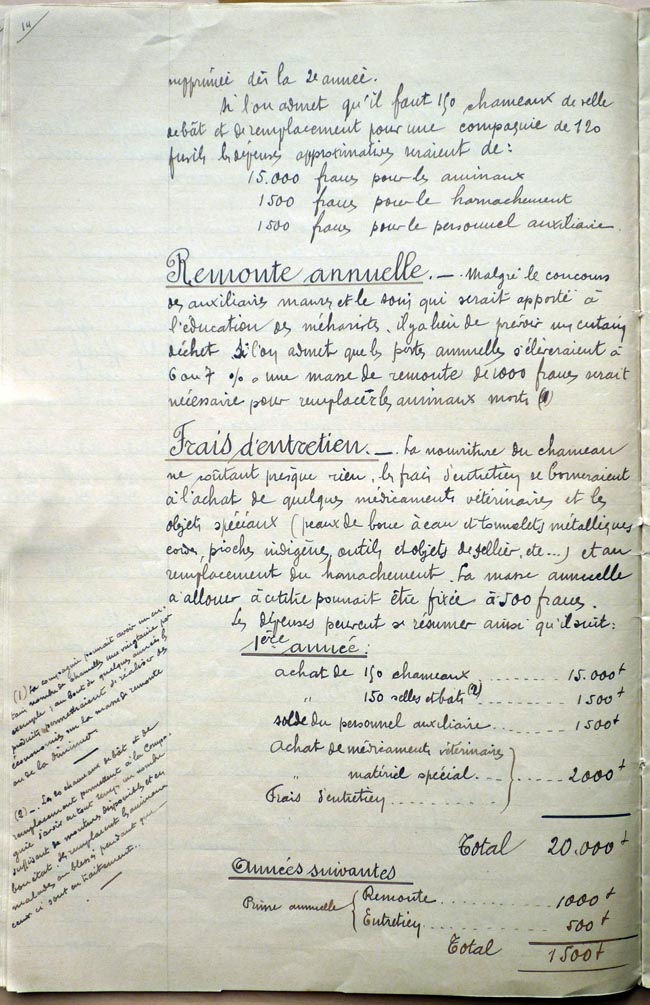 14
supprimée dès la 2e année.
Si l'on admet qu'il faut 150 chameaux de selle
de bât et de remplacement pour une compagnie de 120
fusils les dépenses approximatives seraient de :
15.000 francs pour les animaux
1500 francs pour le harnachement
1500 francs pour le personnel auxiliaire
Remonte annuelle. — Malgré le concours
des auxiliaires maures et le soin qui serait apporté à
l'éducation des méharistes, il y a lieu de prévoir un certain
déchet. Si l'on admet que les pertes annuelles s'élèveraient à
6 ou 7 % une masse de remonte de 1000 francs serait
nécessaire pour remplacer les animaux morts (1)
Frais d'entretien. — La nourriture du chameau
ne coûtant presque rien, les frais d'entretien se borneraient
à l'achat de quelques médicaments vétérinaires et les
objets spéciaux (peaux de bouc à eau et tonnelets métalliques
cordes, pioches indigènes, outils et objets de sellier, etc...) et au
remplacement du harnachement. La masse annuelle
à allouer à ce titre pourrait être fixée à 500 francs.
Les dépenses peuvent se résumer ainsi qu'il suit :
1ère année :
Achat de 150 chameaux ........ 15.000f
" 150 selles et bâts (2) ........ 1500f
solde du personnel auxiliaire ........ 1500f
Achat de médicaments vétérinaires
" matériel spécial ........ 2000f
Frais d'entretien ........
Total 20.000f
Années suivantes
Prime annuelle { Remonte ........ 1000f
Entretien ........ 500f
Total 1500f
(1) La compagnie pourrait avoir un cer-
tain nombre de chamelles une vingtaine par
exemple ; au bout de quelques années les
produits permettraient de réaliser des
économies sur la masse de remonte
ou de la diminuer
(2) — Les chameaux de bât et de
remplacement permettent à la Compa-
gnie d'avoir en tout temps un nombre
suffisant de montures disponibles et en
bon état. Ils remplacent les animaux
malades ou blessés pendant que
ceux ci sont en traitement.